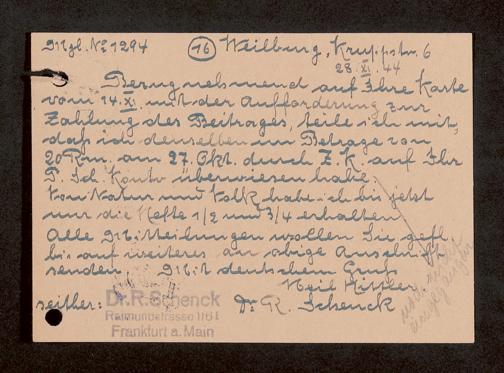 Mgl. Nr 1294 (16) Weilburg, Kruppstr. 6
28. XI. 44
Bezugnehmend auf Ihre Karte
vom 24. XI. mit der Aufforderung zur
Zahlung des Beitrages, teile ich mit,
daß ich denselben im Betrage von
20 Rm. am 27. Okt. durch Z.K. auf Ihr
P. Sch. Konto überwiesen habe.
Von Natur und Volk habe ich bis jetzt
nur die Hefte 1/2 und 3/4 erhalten
Alle Mitteilungen wollen Sie gefl.
bis auf weiteres an obige Anschrift
senden. Mit deutschem Gruß
Heil Hitler
seither: Dr. R. Schenck
Dr. R. Schenck
Raimundstrasse 116 I
Frankfurt a. Main